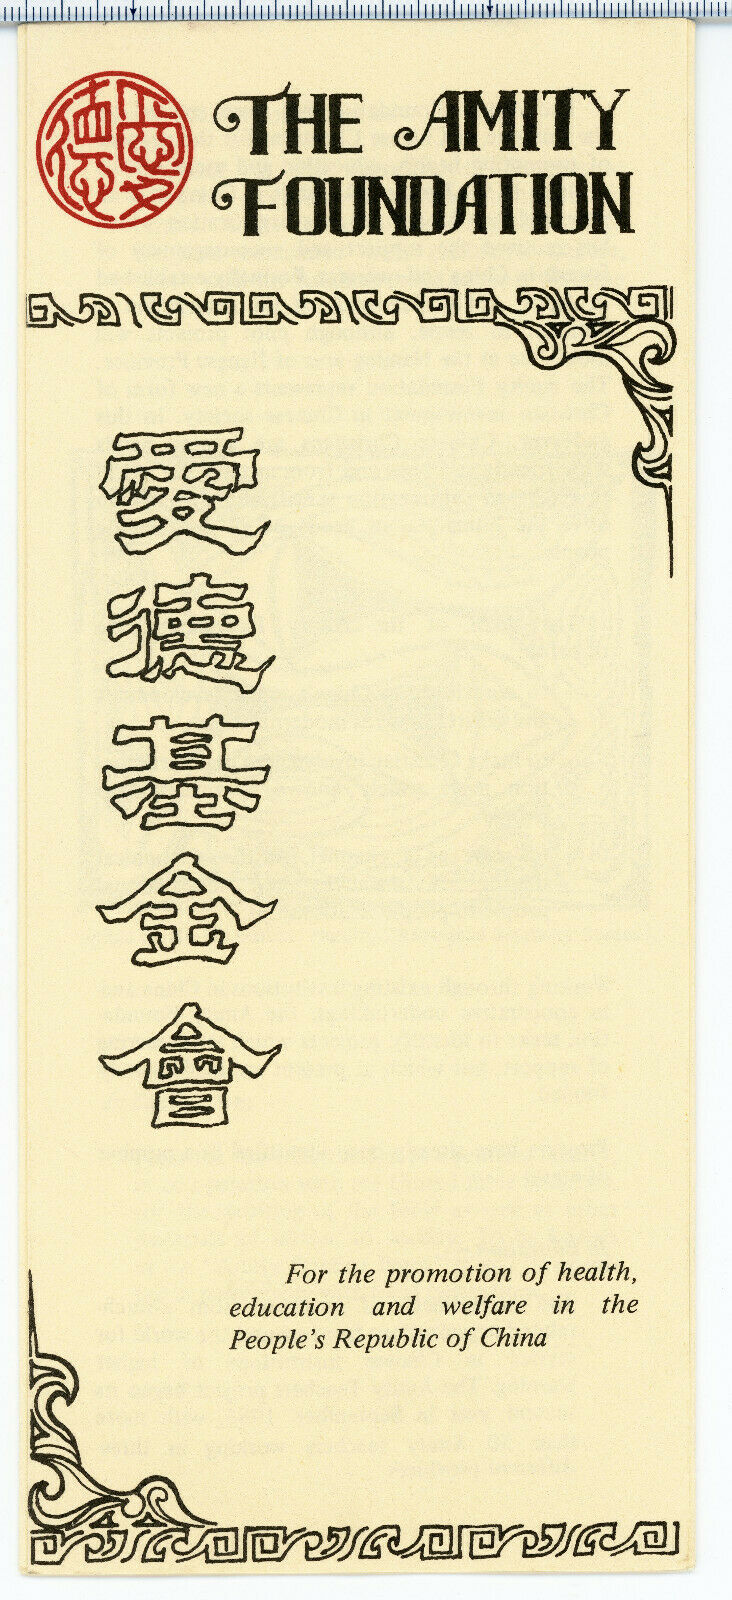 THE AMITY
FOUNDATION
愛德基金會
For the promotion of health,
education and welfare in the
People's Republic of China